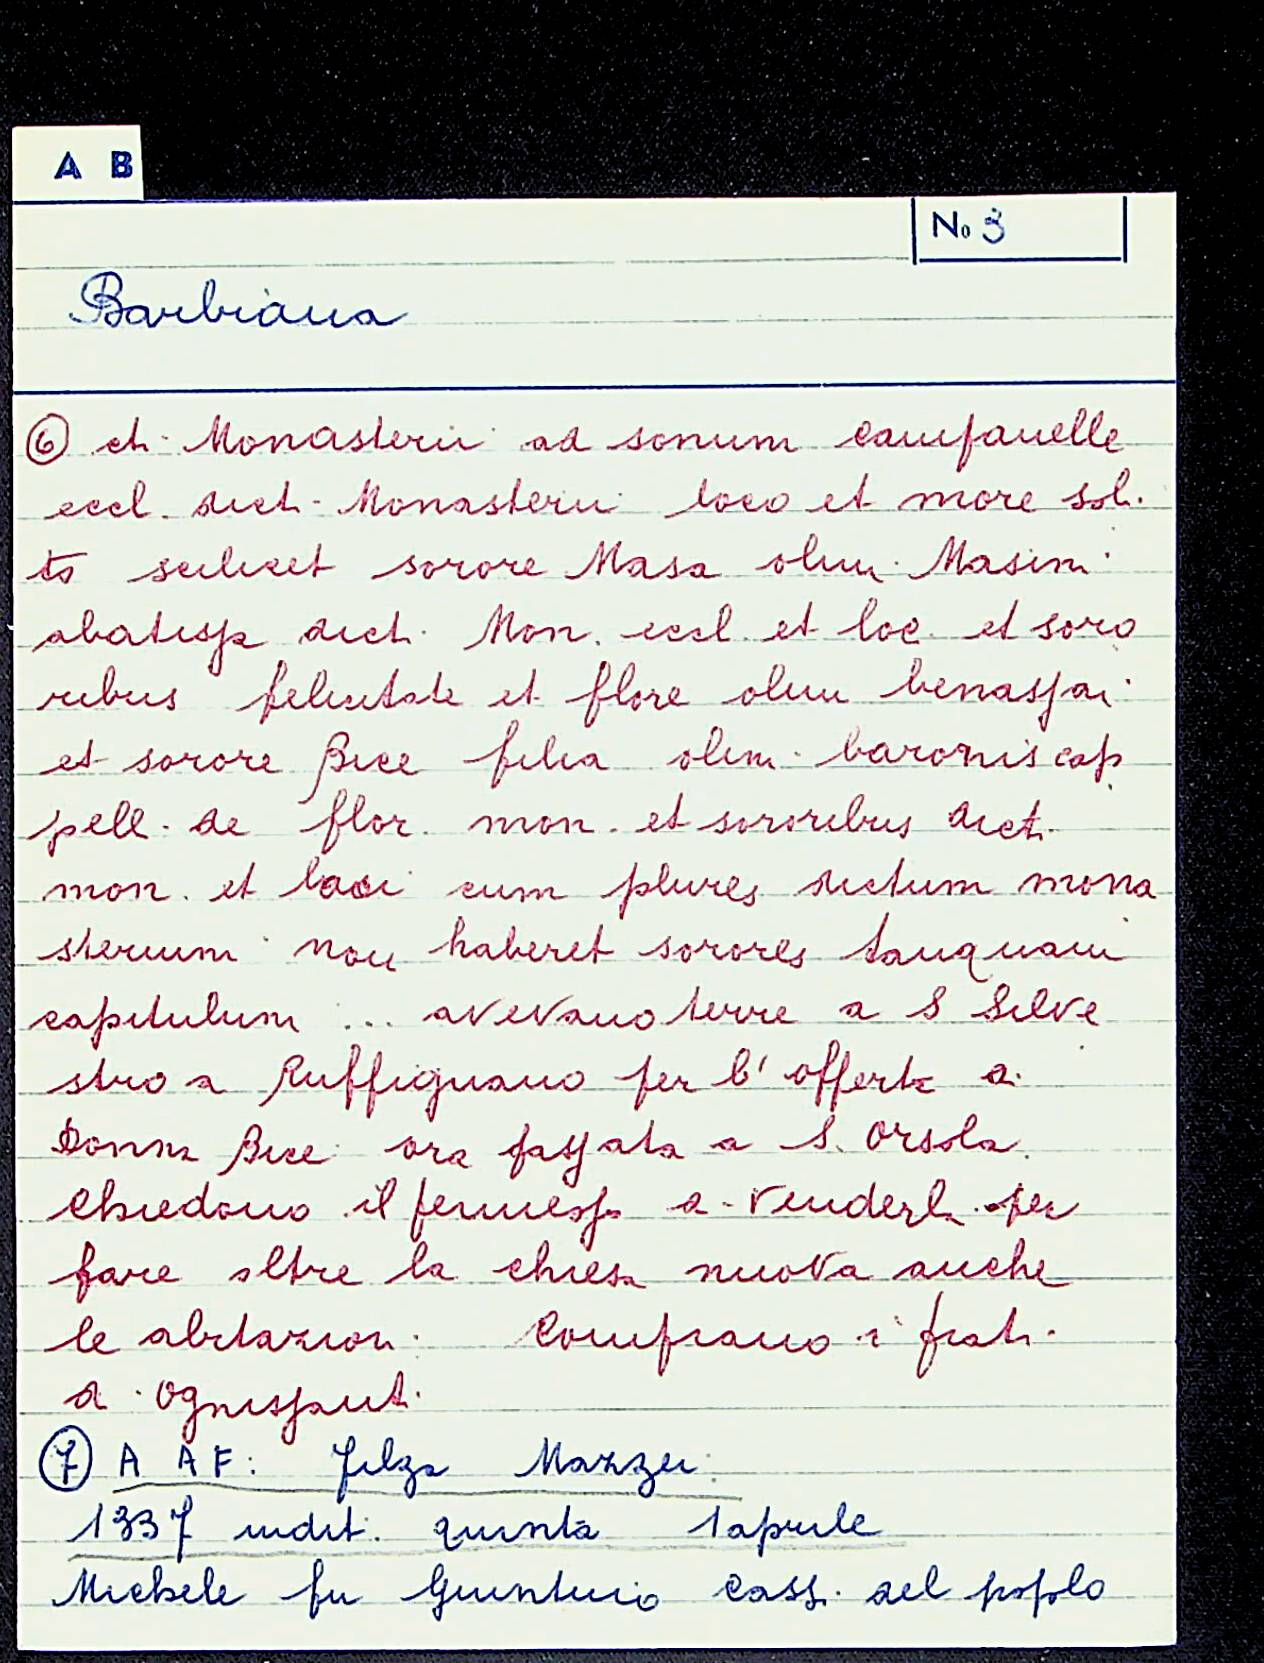 A B
No 3
Barbiana
⑥ et Monasterii ad sonum campanelle
eccl. dict. Monasterii loco et more soli
to scilicet sorore Masa olim Masini
abatissa dict. Mon. eccl. et loc. et soro
ribus felicitate et flore olim benassai
et sorore Bice filia olim baronis cap
pell. de flor. mon. et sororibus dict.
mon. et loci cum plures dictum mona
sterium non haberet sorores tanquam
capitulum ... avevano terre a S Silve
stro a Ruffignano per l'offerta a
Donna Bice ora passata a S. Orsola.
Chiedono il permesso a venderla per
fare oltre la chiesa nuova anche
le abitazioni. Comprano i frati
a Ognissanti.
⑦ A A F: filza Mazzei
1337 indit. quinta 1 aprile
Michele fu Giuntino Cass. del popolo